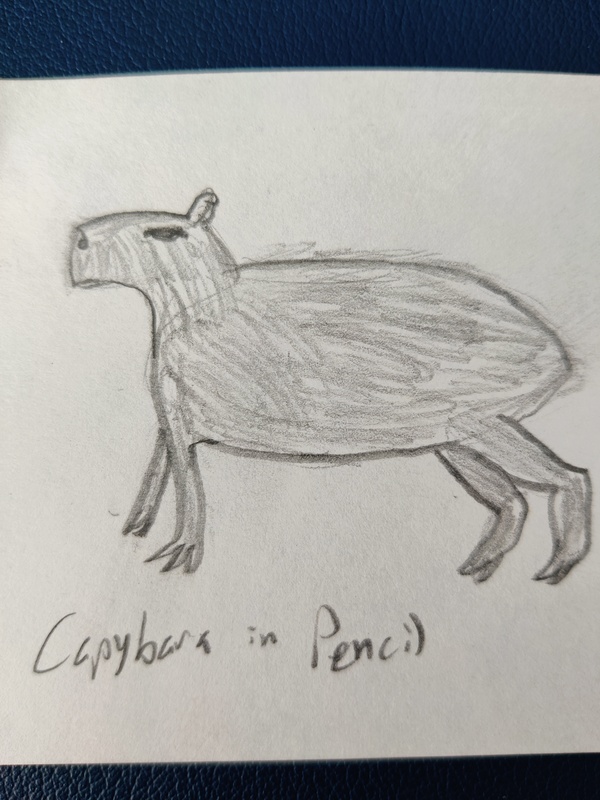 Capybara in Pencil